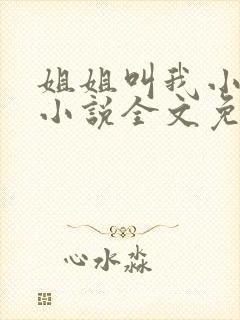 姐姐叫我小
小说全文免
心水淼